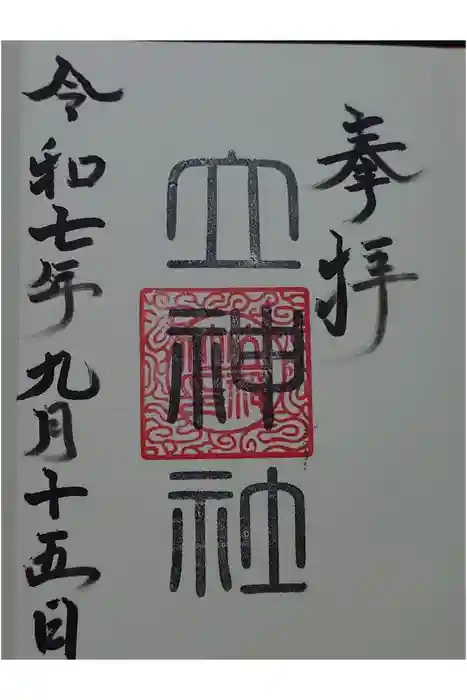 奉拝
立神社
令和七年九月十五日